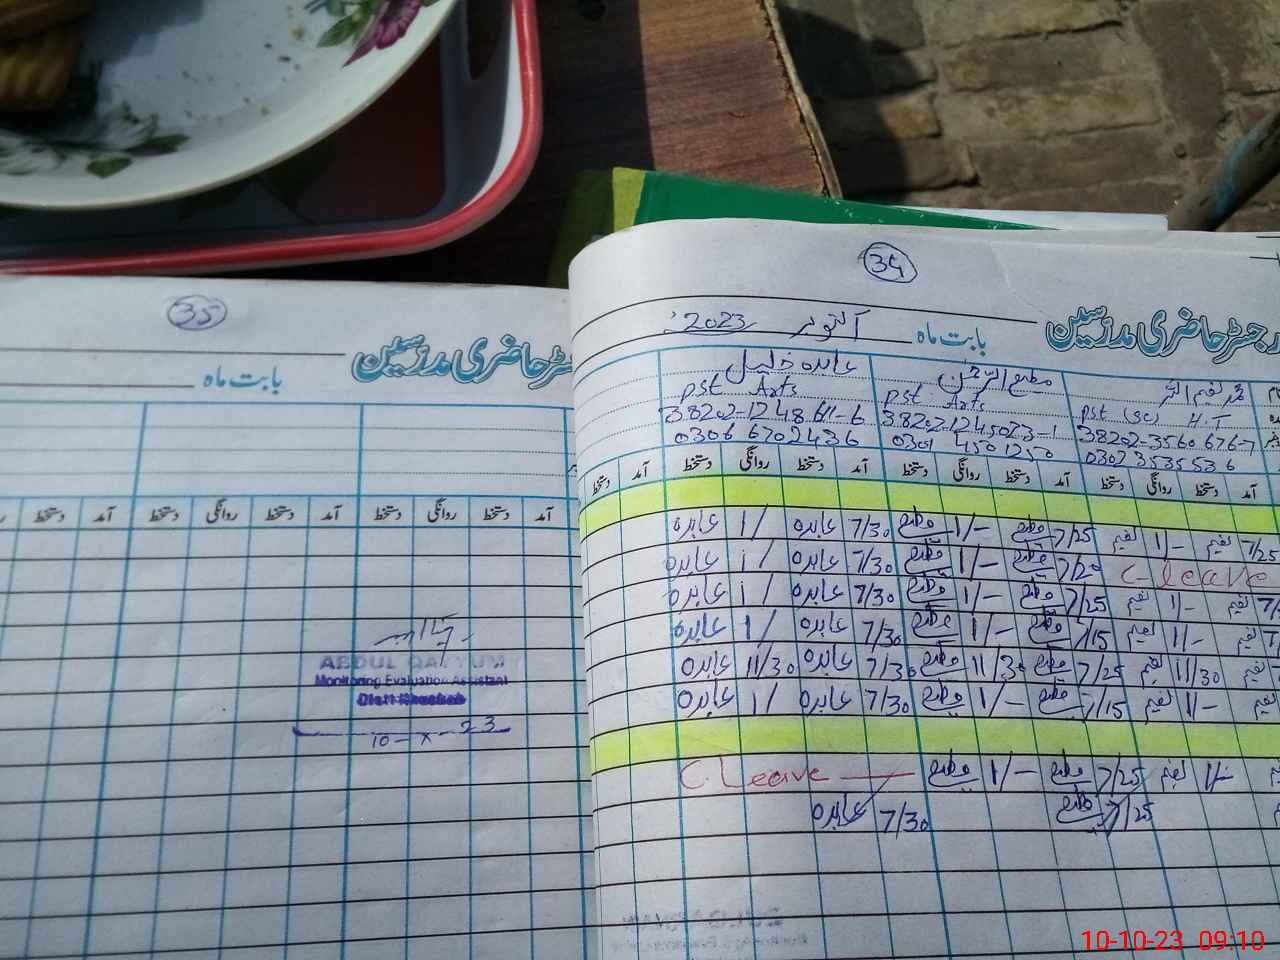 35
رجسٹر حاضری مدرسین
بابت ماہ
آمد دستخط روانگی دستخط آمد دستخط روانگی دستخط آمد
ABDUL QAYYUM
Monitoring Evaluation Assistant
Distt Khushab
10-X-23
34
رجسٹر حاضری مدرسین
بابت ماہ اکتوبر 2023ء
مطیع الرحمٰن عابدہ خلیل
PST (SC) H.T PST Arts PST Arts
38202-3560676-7 38202-1245023-1
0302 3535536 0301 4501250 0306 6702436
آمد دستخط روانگی دستخط آمد دستخط روانگی دستخط آمد دستخط
7/25 نعیم 1/- نعیم 7/25 مطیع 1/- مطیع 7/30 عابدہ 1/ عابدہ
C-leave 7/20 مطیع 1/- مطیع 7/30 عابدہ 1/ عابدہ
نعیم 1/- نعیم 7/25 مطیع 1/- مطیع 7/30 عابدہ 1/ عابدہ
نعیم 1/- نعیم 7/15 مطیع 1/- مطیع 7/30 عابدہ 1/ عابدہ
نعیم 11/30 نعیم 7/25 مطیع 11/30 مطیع 7/30 عابدہ 11/30 عابدہ
نعیم 1/- نعیم 7/15 مطیع 1/- مطیع 7/30 عابدہ 1/ عابدہ
1/- نعیم 7/25 مطیع 1/- مطیع C.Leave
7/25 مطیع 7/30 عابدہ
10-10-23 09:10